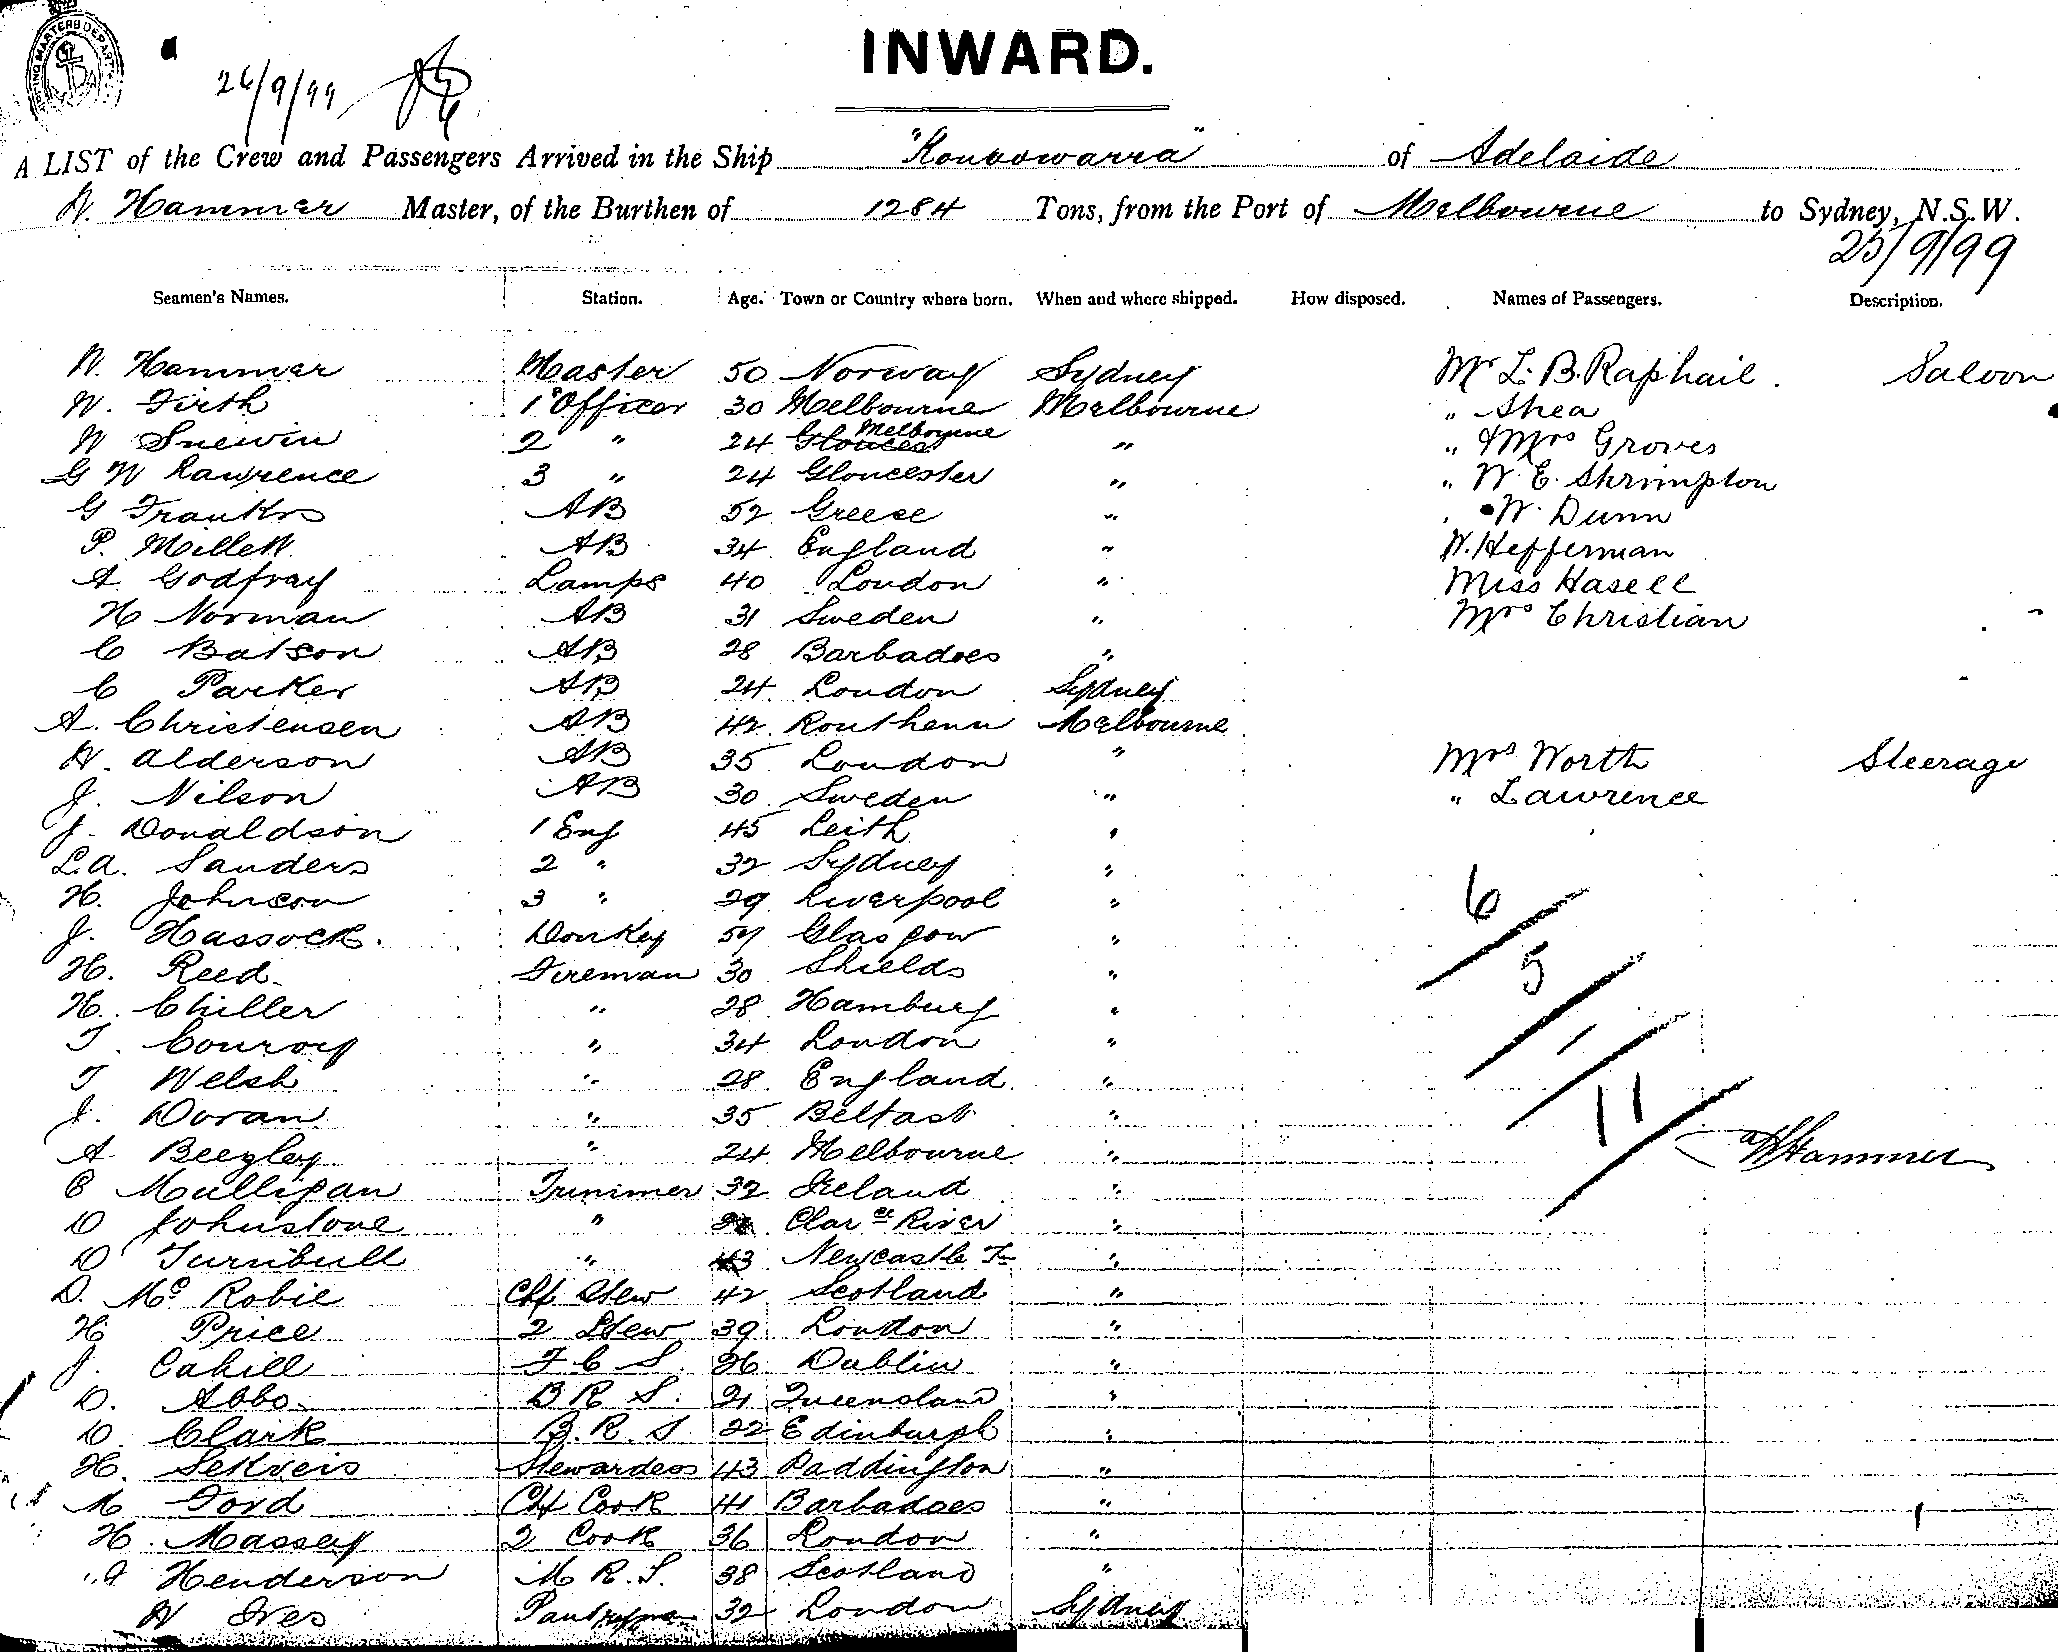 SHIPPING MASTERS DEPARTMENT
26/9/99
INWARD.
A LIST of the Crew and Passengers Arrived in the Ship "Konoowarra" of Adelaide
W. Hammer Master, of the Burthen of 1284 Tons, from the Port of Melbourne to Sydney, N.S.W.
25/9/99
Seamen's Names. Station. Age. Town or Country where born. When and where shipped. How disposed. Names of Passengers. Description.
W. Hammer Master 50 Norway Sydney Mr L. B. Raphail. Saloon
W. Firth 1st Officer 30 Melbourne Melbourne " Shea
W Snewin 2 " 24 Glouces Melbourne " " & Mrs Groves
G W Lawrence 3 " 24 Gloucester " " W. E. Shrimpton
G Franks AB 52 Greese " " W. Dunn
P. Millett AB 34 England " W. Hefferman
A Godfray Lamps 40 London " Miss Hasell
H Norman AB 31 Sweden " Mrs Christian
C Batson AB 28 Barbadoes "
C Parker AB 24 London Sydney
A. Christensen AB 42 Melbourne
W. Alderson AB 35 London " Mrs Worth Steerage
J. Nilson AB 30 Sweden " " Lawrence
J. Donaldson 1 Eng 45 Leith "
L.A. Sanders 2 " 32 Sydney "
H. Johnson 3 " 29 Liverpool "
J. Hassock. Donkey Glasgow "
H. Reed. Fireman 30 Shields "
H. Chiller " 28 Hamburg "
T. Conroy " 34 London "
T Welsh " 28 England "
J. Doran " 35 Belfast "
A Beegley " 24 Melbourne "
C Mulligan Trimmer 32 Ireland "
D Johnstone " Clarce River "
D Turnbull " 43 Newcastle "
D. Mc Robie Chf Stew 42 Scotland "
H Price 2 Stew 39 London "
J. Cahill F C S. 26 Dublin "
D. Abbo. B R S. 21 Queensland "
D. Clark B. R. S 22 Edinburgh "
H. Stewardess 43 Paddington "
M Ford Chf Cook 41 Barbadoes "
H. Massey 2 Cook 36 London "
Henderson M R. S. 38 Scotland "
W Ives Pantryman 32 London Sydney
6/
5/
1/
11/
W Hammer